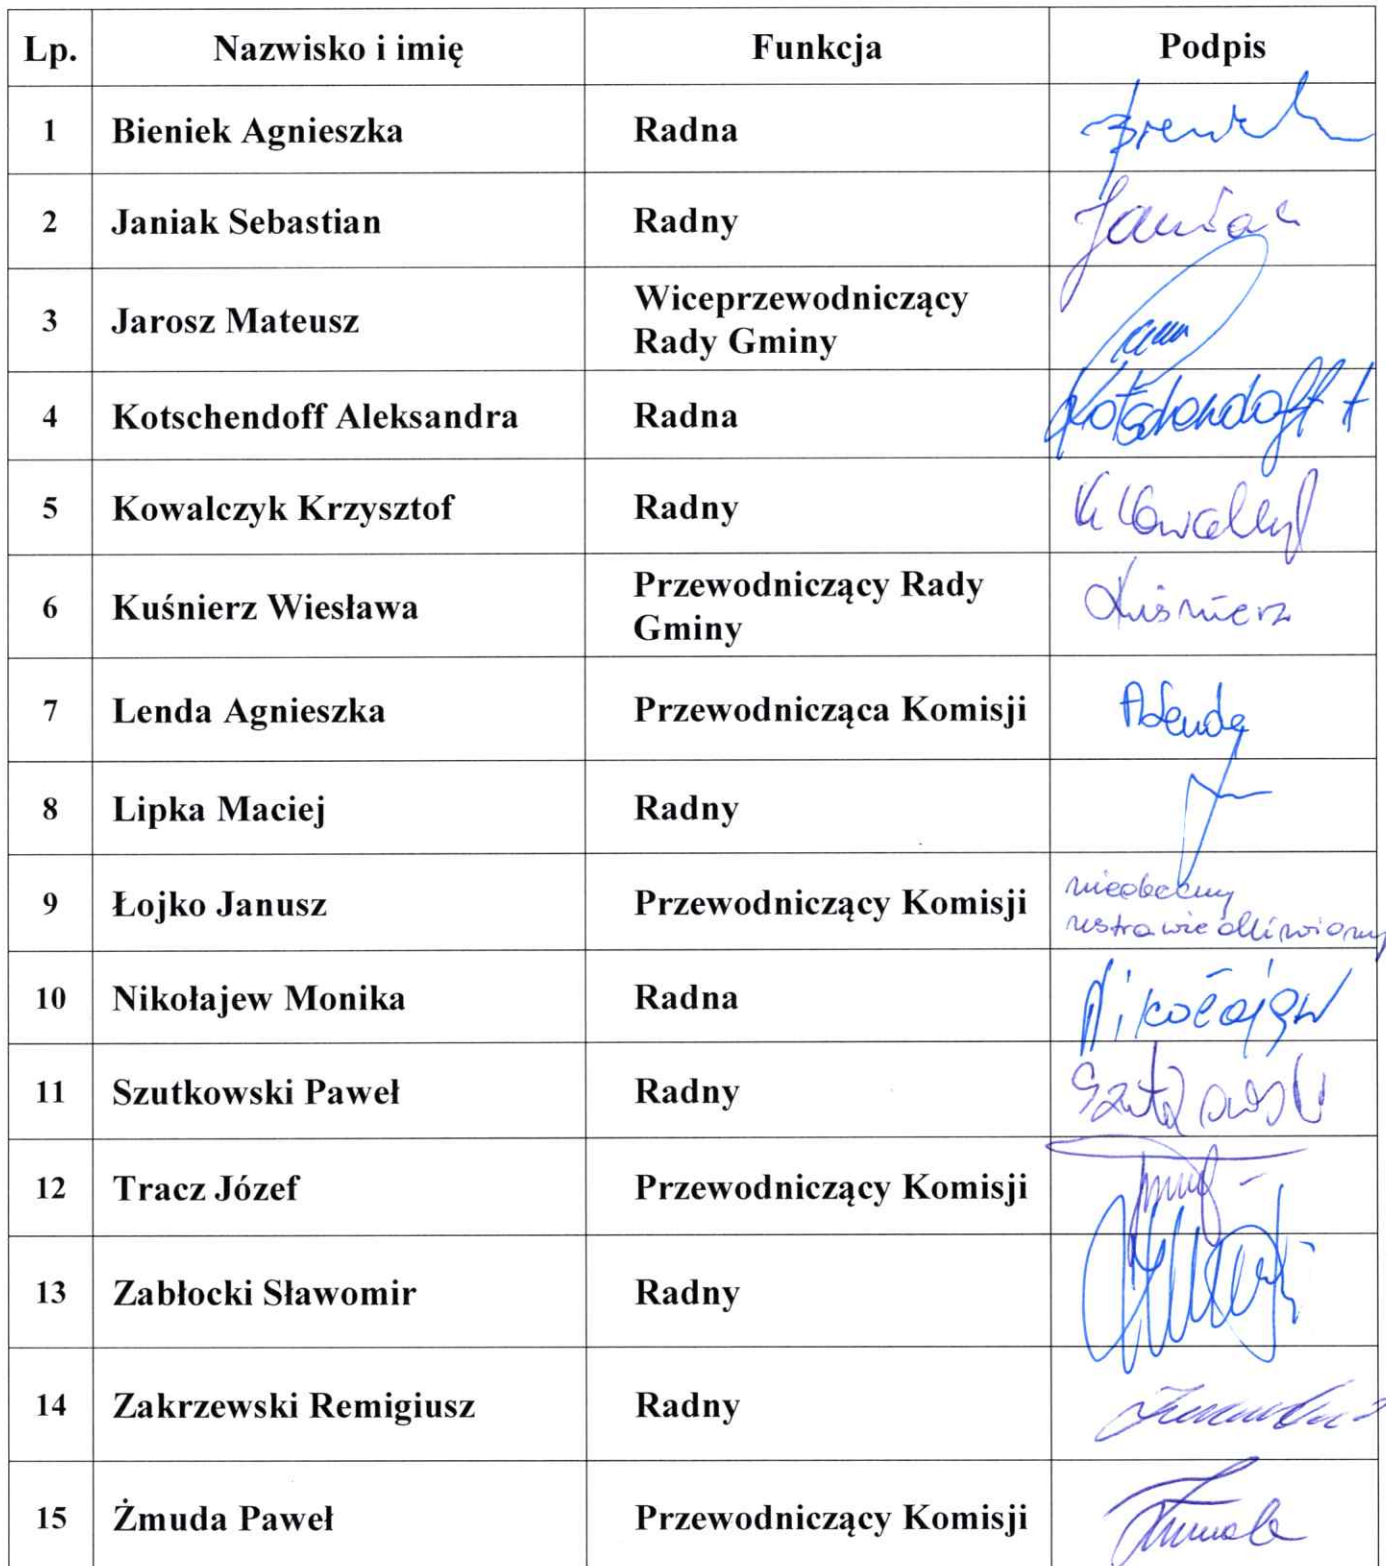 Lp. Nazwisko i imię Funkcja Podpis
1 Bieniek Agnieszka Radna
2 Janiak Sebastian Radny Janiak
3 Jarosz Mateusz Wiceprzewodniczący
Rady Gminy
4 Kotschendoff Aleksandra Radna Kotschendoff A
5 Kowalczyk Krzysztof Radny
6 Kuśnierz Wiesława Przewodniczący Rady Kuśnierz
Gminy
7 Lenda Agnieszka Przewodnicząca Komisji ALenda
8 Lipka Maciej Radny
9 Łojko Janusz Przewodniczący Komisji nieobecny
usprawiedliwiony
10 Nikołajew Monika Radna Nikołajew
11 Szutkowski Paweł Radny Szutkowski
12 Tracz Józef Przewodniczący Komisji
13 Zabłocki Sławomir Radny
14 Zakrzewski Remigiusz Radny
15 Żmuda Paweł Przewodniczący Komisji